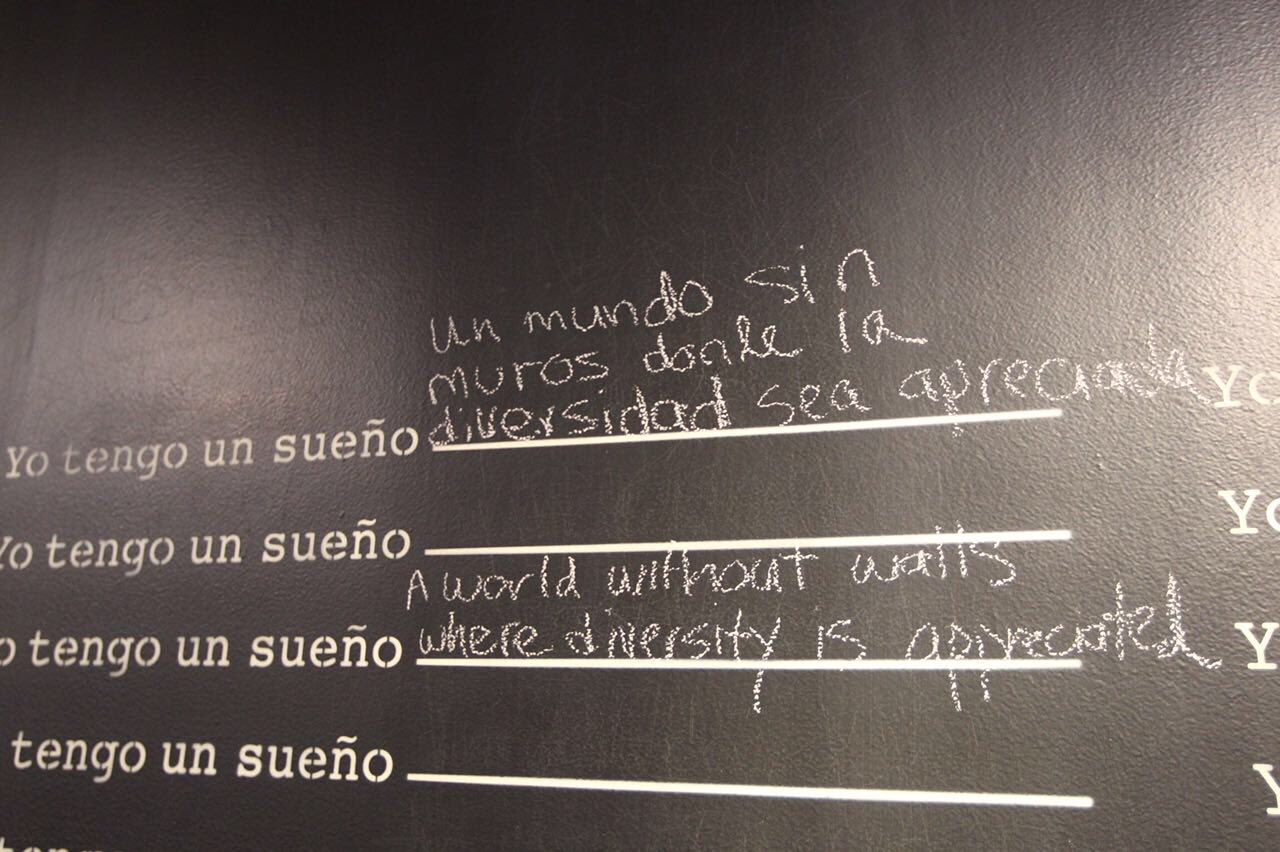 un mundo sin
muros donde la
Yo tengo un sueño diversidad sea apreciada Yo
Yo tengo un sueño Yo
A world without walls
tengo un sueño where diversity is appreciated Y
tengo un sueño Y